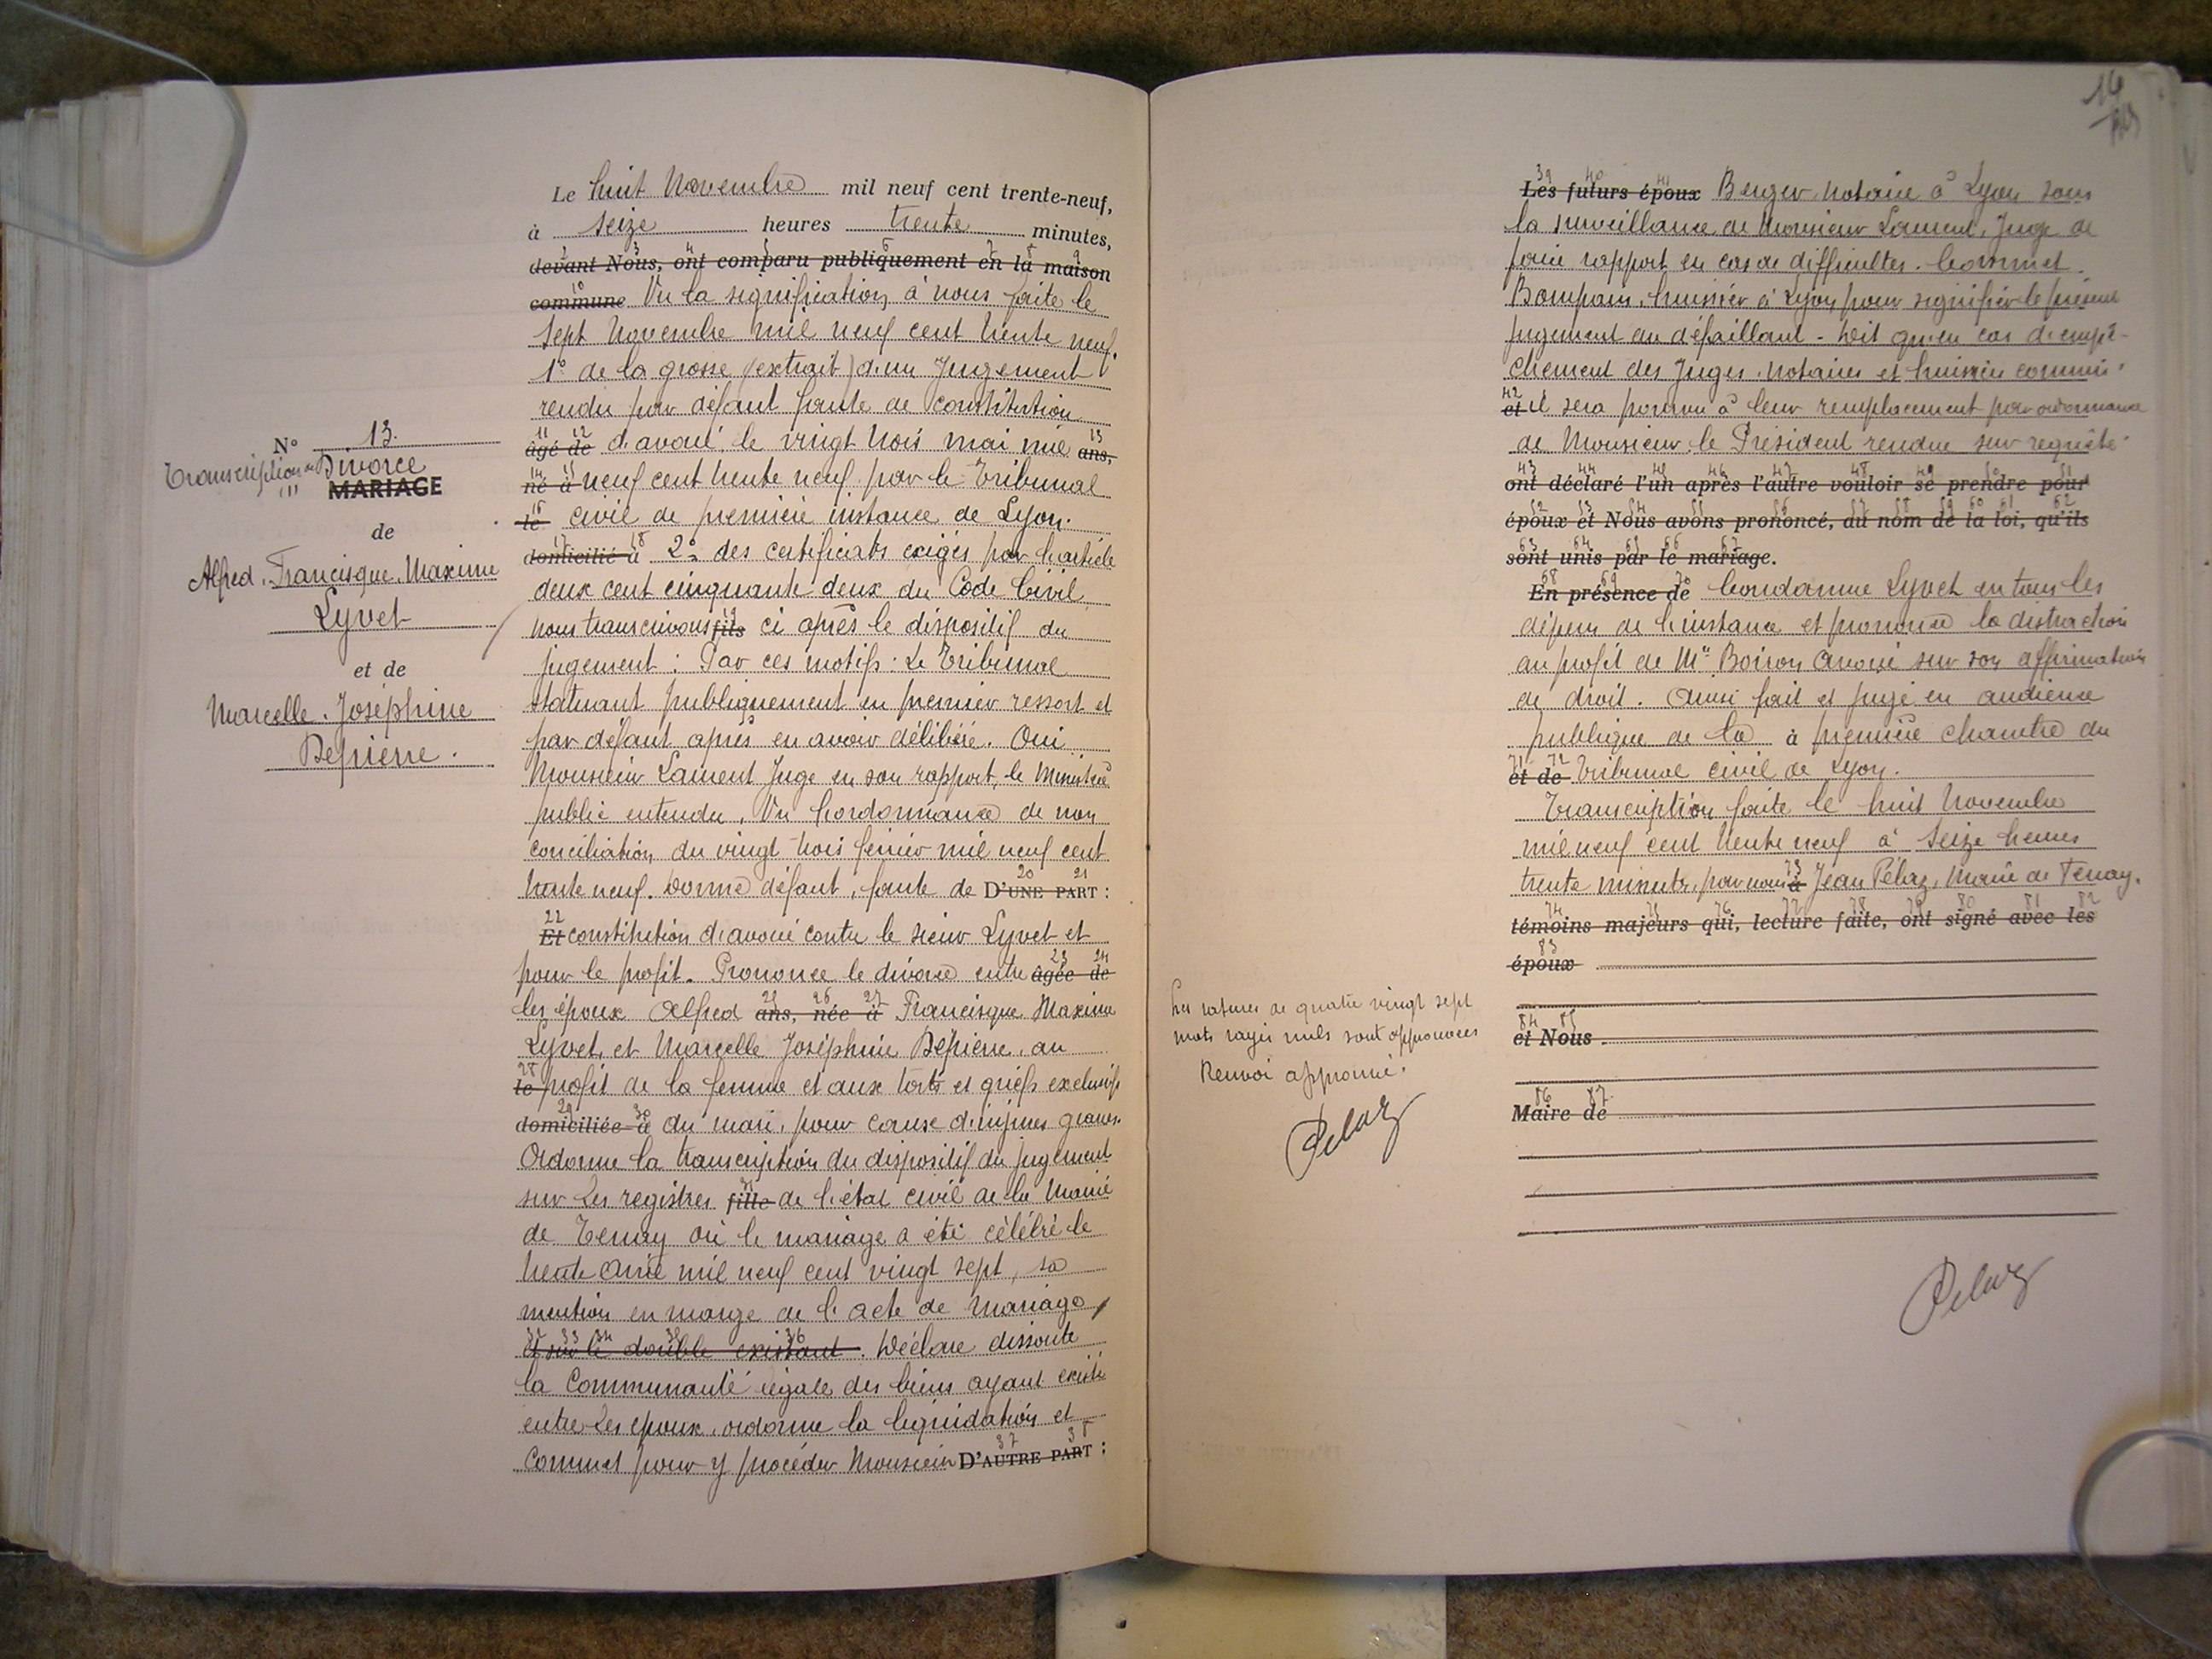 N° 13.
Transcription de Divorce
MARIAGE
de
Alfred. Francisque. Maxime
Lyvet
et de
Marcelle. Joséphine
Depierre.
Le huit Novembre mil neuf cent trente-neuf,
à seize heures trente minutes,
devant Nous, ont comparu publiquement en la maison
commune Vu la signification à nous faite le
sept Novembre mil neuf cent trente neuf.
1° de la grosse (extrait) d'un Jugement
rendu par défaut faute de constitution
âgé de d'avoué le vingt trois mai mil ans,
né à neuf cent trente neuf par le Tribunal
le civil de première instance de Lyon.
domicilié à 2° des certificats exigés par l'article
deux cent cinquante deux du Code Civil
nous transcrivons fils ci après le dispositif du
jugement : Par ces motifs : Le Tribunal
statuant publiquement en premier ressort et
par défaut après en avoir délibéré. Oui
Monsieur Laurent Juge en son rapport, le Ministère
public entendu, Vu l'ordonnance de non
conciliation du vingt trois février mil neuf cent
trente neuf. Donne défaut, faute de D'UNE PART :
Et constitution d'avoué contre le sieur Lyvet et
pour le profit. Prononce le divorce entre âgée de
les époux Alfred ans, née à Francisque Maxime
Lyvet, et Marcelle Joséphine Depierre, au
le profit de la femme et aux torts et griefs exclusifs
domiciliée à du mari, pour cause d'injures graves.
Ordonne la transcription du dispositif du jugement
sur les registres fille de l'état civil de la Mairie
de Tenay où le mariage a été célébré le
trente Avril mil neuf cent vingt sept, sa
mention en marge de l'acte de Mariage,
et sur le double existant. Déclare dissoute
la Communauté légale des biens ayant existé
entre les époux, ordonne la liquidation et
commet pour y procéder Monsieur D'AUTRE PART :
Les futurs époux Berger, notaire à Lyon sous
la surveillance de Monsieur Laurent, Juge de
faire rapport en cas de difficultés. Commet
Bompain, huissier à Lyon, pour signifier le présent
jugement au défaillant - Dit qu'en cas d'empê-
chement des Juges, Notaires et huissier commis
et il sera pourvu à leur remplacement par ordonnance
de Monsieur le Président rendue sur requête
ont déclaré l'un après l'autre vouloir se prendre pour
époux et Nous avons prononcé, au nom de la loi, qu'ils
sont unis par le mariage.
En présence de Condamne Lyvet en tous les
dépens de l'instance et prononce la distraction
au profit de Me Boiron Avoué sur son affirmation
de droit. Ainsi fait et jugé en audience
publique de la à première chambre du
et de Tribunal civil de Lyon.
Transcription faite le huit Novembre
mil neuf cent trente neuf à seize heures
trente minutes, par nous à Jean Pélaz, Maire de Tenay.
témoins majeurs qui, lecture faite, ont signé avec les
époux
et Nous.
Maire de
Les ratures de quatre vingt sept
mots rayés nuls sont approuvées
Renvoi approuvé.
Pelaz
Pelaz